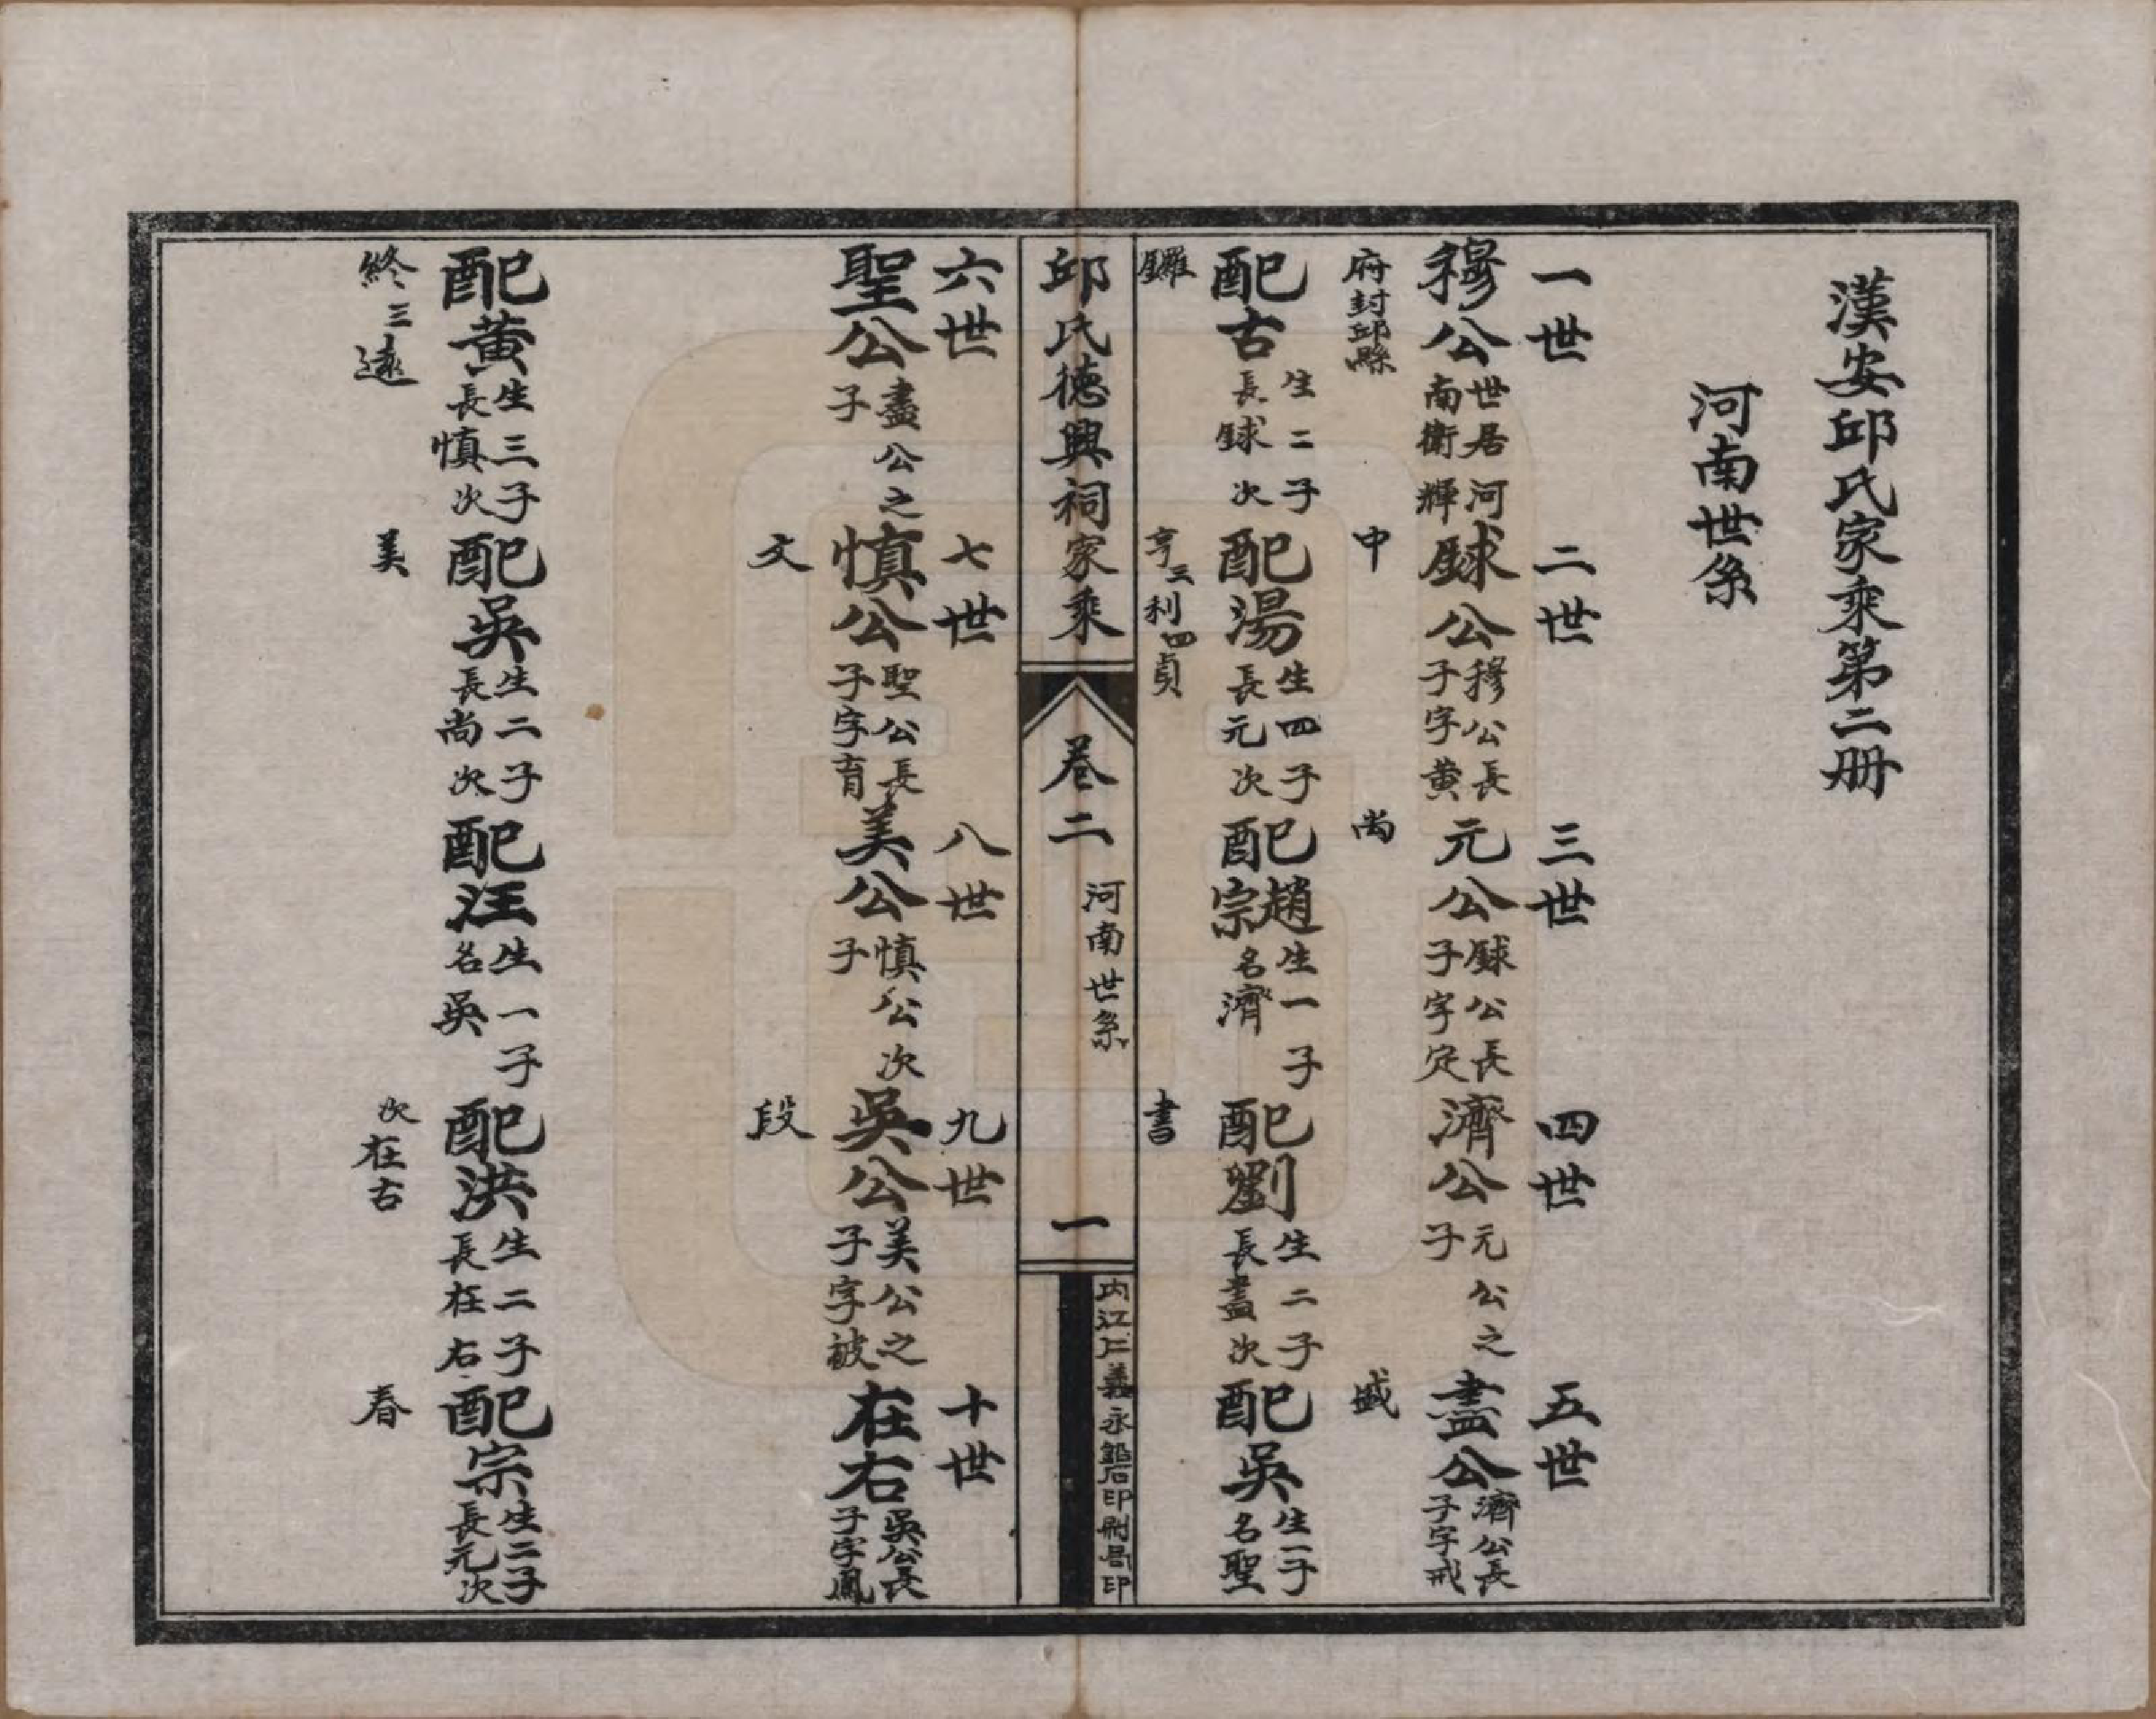 漢安邱氏家乘第二冊
河南世系
一世
穆公世居河南衛輝府封邱縣
配古生二子長銶次鑼
二世
銶公穆公長子字黄中
配湯生四子長元次亨三利四貞
三世
元公銶公長子字定尚
配趙宗生一子名濟
四世
濟公元公之子
配劉生二子長盡次書
五世
盡公濟公長子字戒盛
配吳生一子名聖
邱氏德興祠家乘
卷二
河南世系
一
内江仁義永鉛石印刷局印
六世
聖公盡公之子
配黄生三子長慎次終三遠
七世
慎公聖公長子字育文
配吳生二子長尚次美
八世
美公慎公次子
配汪生一子名吳
九世
吳公美公之子字被段
配洪生二子長在右次在古
十世
在右吳公長子字鳳
配宗生二子長元次春